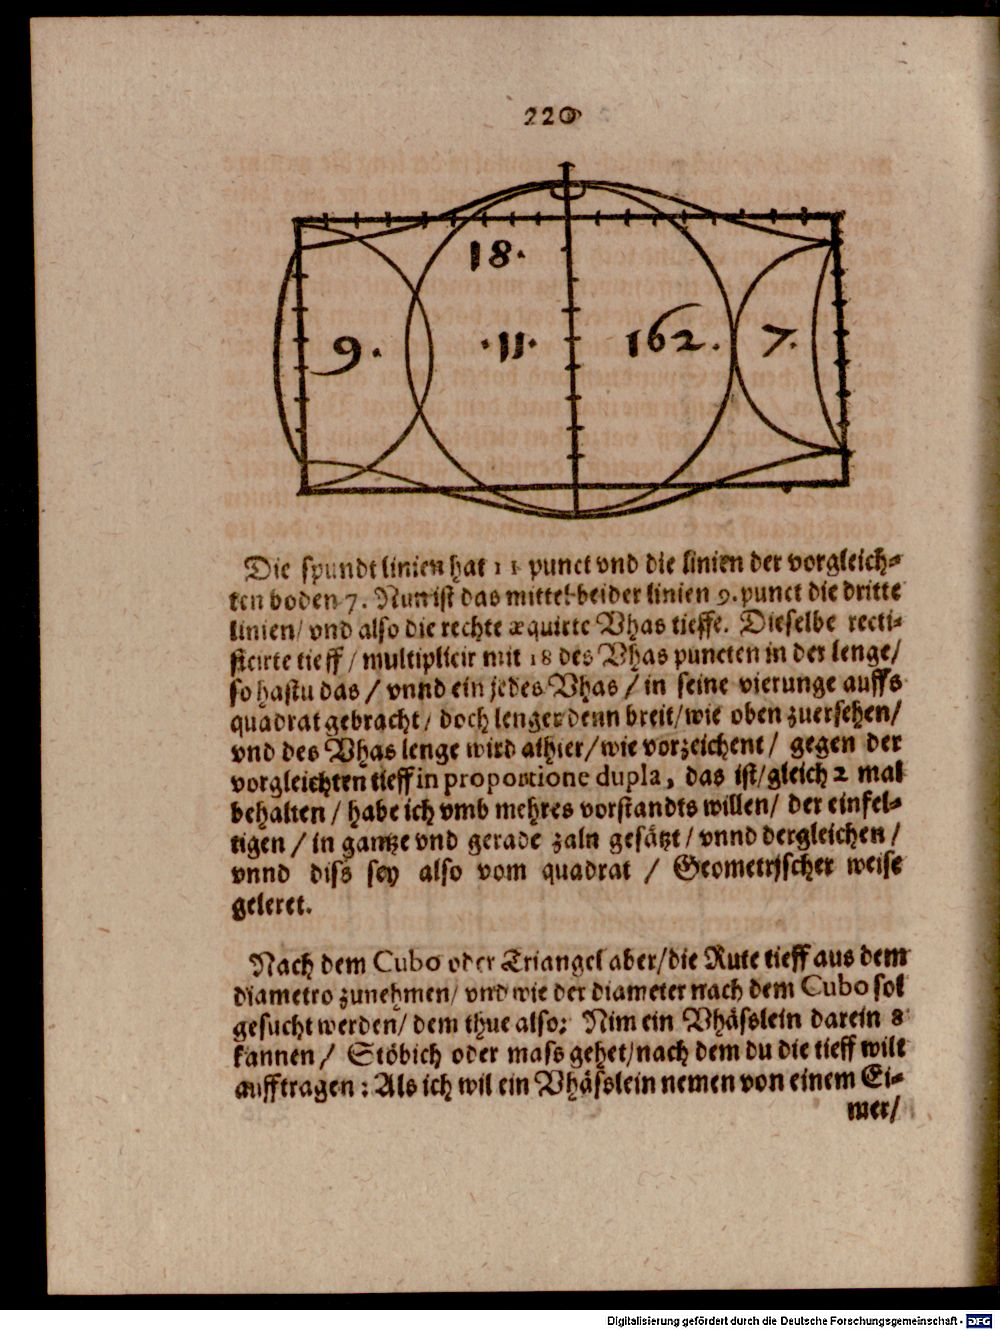 220
18.
9.
.11.
162.
7.
Die spundt linien hat 11 punct vnd die linien der vorgleich-
ten boden 7. Nun ist das mittel beider linien 9. punct die dritte
linien/ vnd also die rechte æquirte Vhas tieffe. Dieselbe recti-
ficirte tieff/ multiplicir mit 18 des Vhas puncten in der lenge/
so hastu das/ vnnd ein jedes Vhas/ in seine vierunge auffs
quadrat gebracht/ doch lenger denn breit/ wie oben zuersehen/
vnd des Vhas lenge wird alhier/ wie vorzeichent/ gegen der
vorgleichten tieff in proportione dupla, das ist/ gleich 2 mal
behalten/ habe ich vmb mehres vorstandts willen/ der einfel-
tigen/ in gantze vnd gerade zaln gesätzt/ vnnd dergleichen/
vnnd diss sey also vom quadrat / Geometrischer weise
geleret.
Nach dem Cubo oder Triangel aber/ die Rute tieff aus dem
diametro zunehmen/ vnd wie der diameter nach dem Cubo sol
gesucht werden/ dem thue also: Nim ein Vhässlein darein 8
kannen/ Stöbich oder mass gehet/ nach dem du die tieff wilt
aufftragen: Als ich wil ein Vhässlein nemen von einem Ei-
mer/
Digitalisierung gefördert durch die Deutsche Forschungsgemeinschaft - DFG